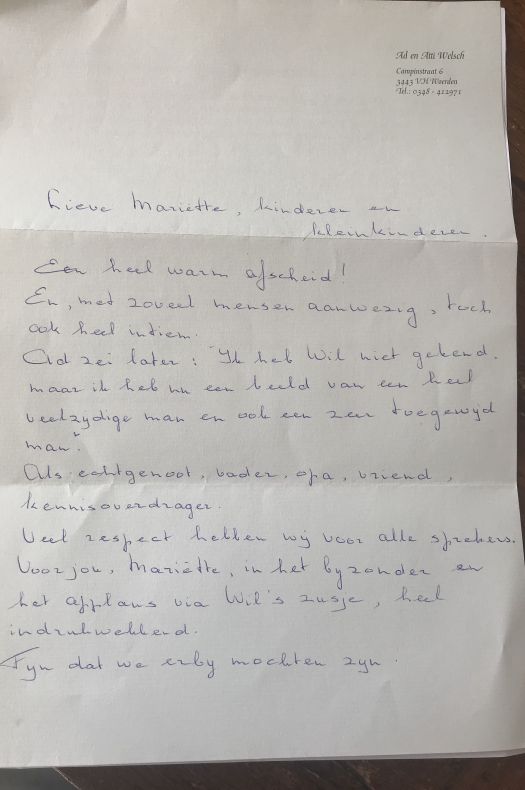 Ad en Atti Welsch
Campinstraat 6
3443 VH Woerden
Tel.: 0348 - 412971
Lieve Mariëtte, kinderen en
kleinkinderen.
Een heel warm afscheid!
En, met zoveel mensen aanwezig, toch
ook heel intiem.
Ad zei later: "Ik heb Wil niet gekend.
maar ik heb nu een beeld van een heel
veelzydige man en ook een zeer toegewyd
man".
Als echtgenoot, vader, opa, vriend,
kennisoverdrager.
Veel respect hebben wij voor alle sprekers.
Voor jou, Mariëtte, in het byzonder en
het applaus via Wil's zusje, heel
indrukwekkend.
Fyn dat we erby mochten zyn.